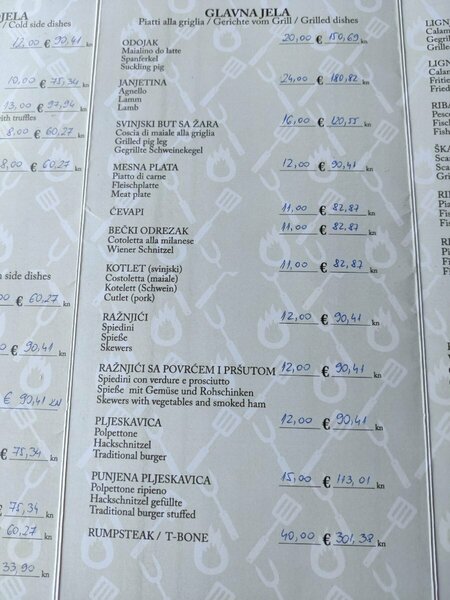 JELA
/ Cold side dishes
12,00 € 90,41 kn
10,00 € 75,34 kn
13,00 € 97,94 kn
with truffles
8,00 € 60,27 kn
8,00 € 60,27 kn
n side dishes
00 € 60,27 kn
€ 90,41 kn
€ 90,41 KN
€ 75,34 kn
€ 75,34 kn
60,27 kn
33,90 kn
GLAVNA JELA
Piatti alla griglia / Gerichte vom Grill / Grilled dishes
ODOJAK 20,00 € 150,69 kn
Maialino do latte
Spanferkel
Suckling pig
JANJETINA 24,00 € 180,82 kn
Agnello
Lamm
Lamb
SVINJSKI BUT SA ŽARA 16,00 € 120,55 kn
Coscia di maiale alla griglia
Grilled pig leg
Gegrillte Schweinekegel
MESNA PLATA 12,00 € 90,41 kn
Piatto di carne
Fleischplatte
Meat plate
ČEVAPI 11,00 € 82,87 kn
BEČKI ODREZAK 11,00 € 82,87 kn
Cotoletta alla milanese
Wiener Schnitzel
KOTLET (svinjski) 11,00 € 82,87 kn
Costoletta (maiale)
Kotelett (Schwein)
Cutlet (pork)
RAŽNJIĆI 12,00 € 90,41 kn
Spiedini
Spieße
Skewers
RAŽNJIĆI SA POVRĆEM I PRŠUTOM 12,00 € 90,41 kn
Spiedini con verdure e prosciutto
Spieße mit Gemüse und Rohschinken
Skewers with vegetables and smoked ham
PLJESKAVICA 12,00 € 90,41 kn
Polpettone
Hackschnitzel
Traditional burger
PUNJENA PLJESKAVICA 15,00 € 113,01 kn
Polpettone ripieno
Hackschnitzel gefüllte
Traditional burger stuffed
RUMPSTEAK / T-BONE 40,00 € 301,38 kn
LIGN
Calam
Gegril
Grille
LIGN
Calam
Fritie
Fried
RIBA
Pesce
Fisch
Fish
ŠKA
Scam
Scam
Gri
RI
Pia
Fis
Fis
RI
Pi
Fi
Fi